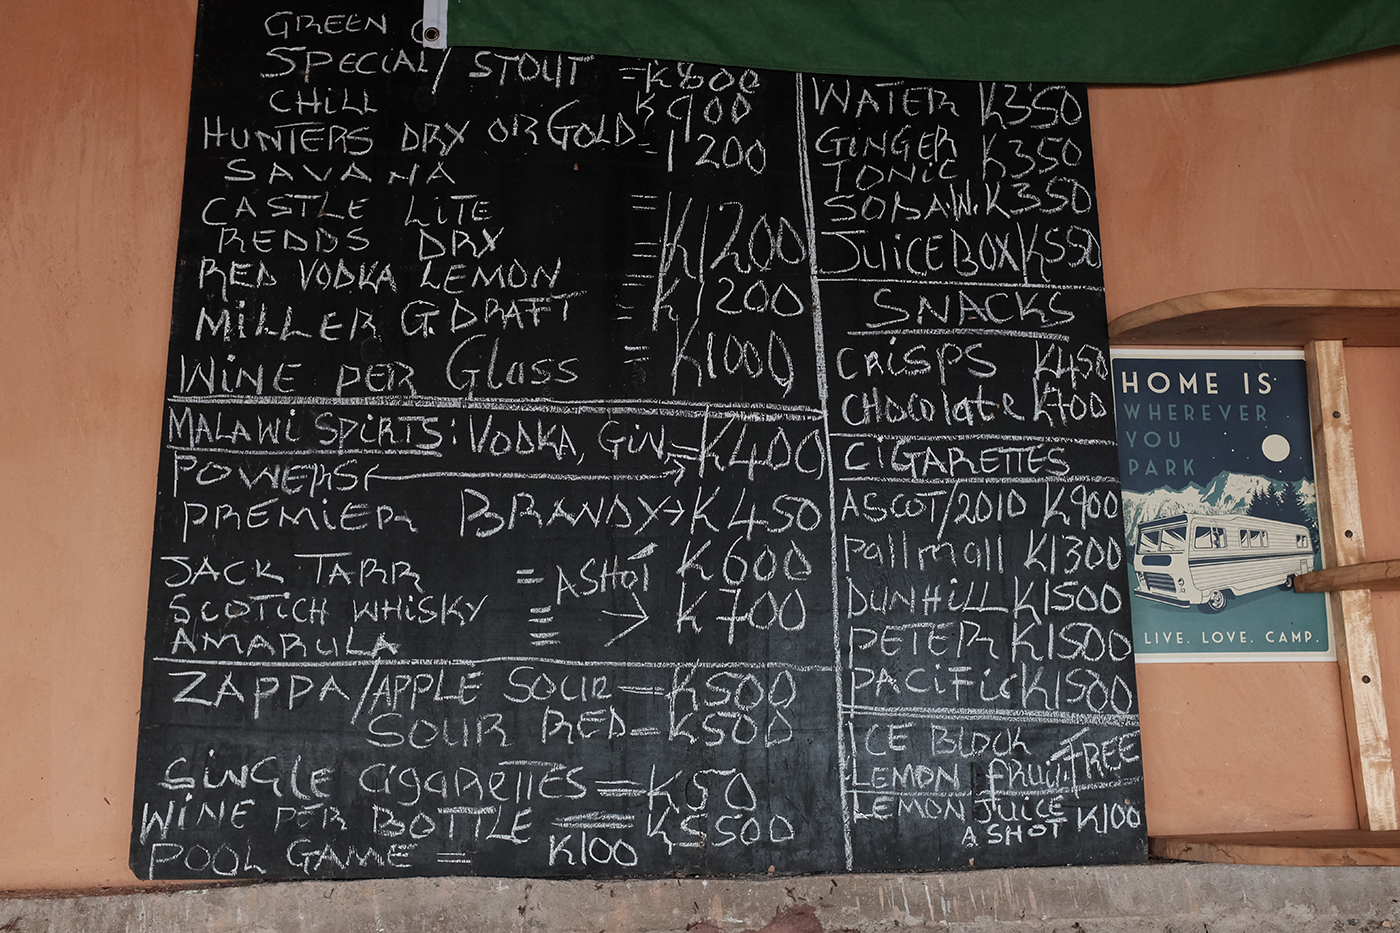 GREEN
SPECIAL/ STOUT = K800
CHILL K900
HUNTERS DRY OR GOLD = 1200
SAVANA
CASTLE LITE =
REDDS DRY = K1200
RED VODKA LEMON
MILLER G.DRAFT = K1200
WINE PER Glass = K1000
MALAWI SPIRTS: VODKA, GIN = K400
POWERS
PREMIER BRANDY → K450
JACK TARR = A SHOT K600
SCOTICH WHISKY = → K700
AMARULA =
ZAPPA/APPLE SOUR = K500
SOUR RED = K500
SINGLE CIGARETTES = K50
WINE PER BOTTLE = K5500
POOL GAME = K100
WATER K350
GINGER K350
TONIC
SODA.W. K350
JUICE BOX K550
SNACKS
CRISPS K450
CHOCOLATE K700
CIGARETTES
ASCOT/2010 K900
Pall mall K1300
DUNHILL K1500
PETER K1500
PACIFIC K1500
ICE BLOCK = FREE
LEMON fruit
LEMON JUICE
A SHOT K100
HOME IS
WHEREVER
YOU
PARK
LIVE. LOVE. CAMP.